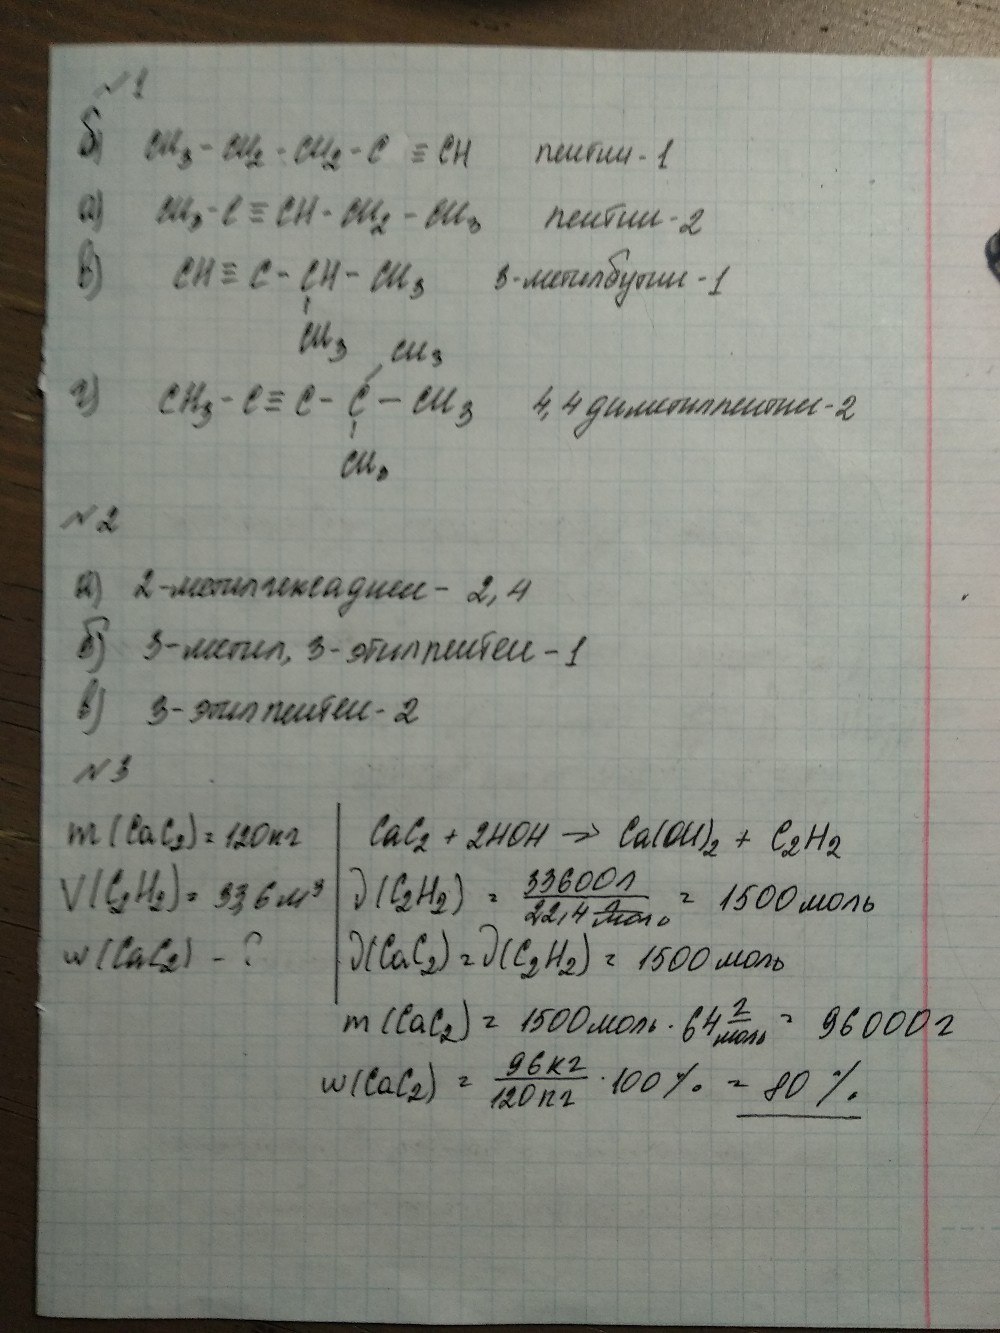 №1
б) CH3 - CH2 - CH2 - C ≡ CH пентин-1
а) CH3 - C ≡ CH - CH2 - CH3 пентин-2
в) CH ≡ C - CH - CH3 3-метилбутин-1
CH3
CH3
г) CH3 - C ≡ C - C - CH3 4,4 диметилпентин-2
CH3
№2
а) 2-метилгексадиен-2,4
б) 3-метил, 3-этилпентен-1
в) 3-этилпентен-2
№3
m(CaC2) = 120кг
V(C2H2) = 33,6 м³
w(CaC2) - ?
CaC2 + 2HOH → Ca(OH)2 + C2H2
ν(C2H2) = 33600л / 22,4 л/моль = 1500 моль
ν(CaC2) = ν(C2H2) = 1500 моль
m(CaC2) = 1500моль · 64 г/моль = 96000г
w(CaC2) = 96кг / 120кг · 100% = 80%